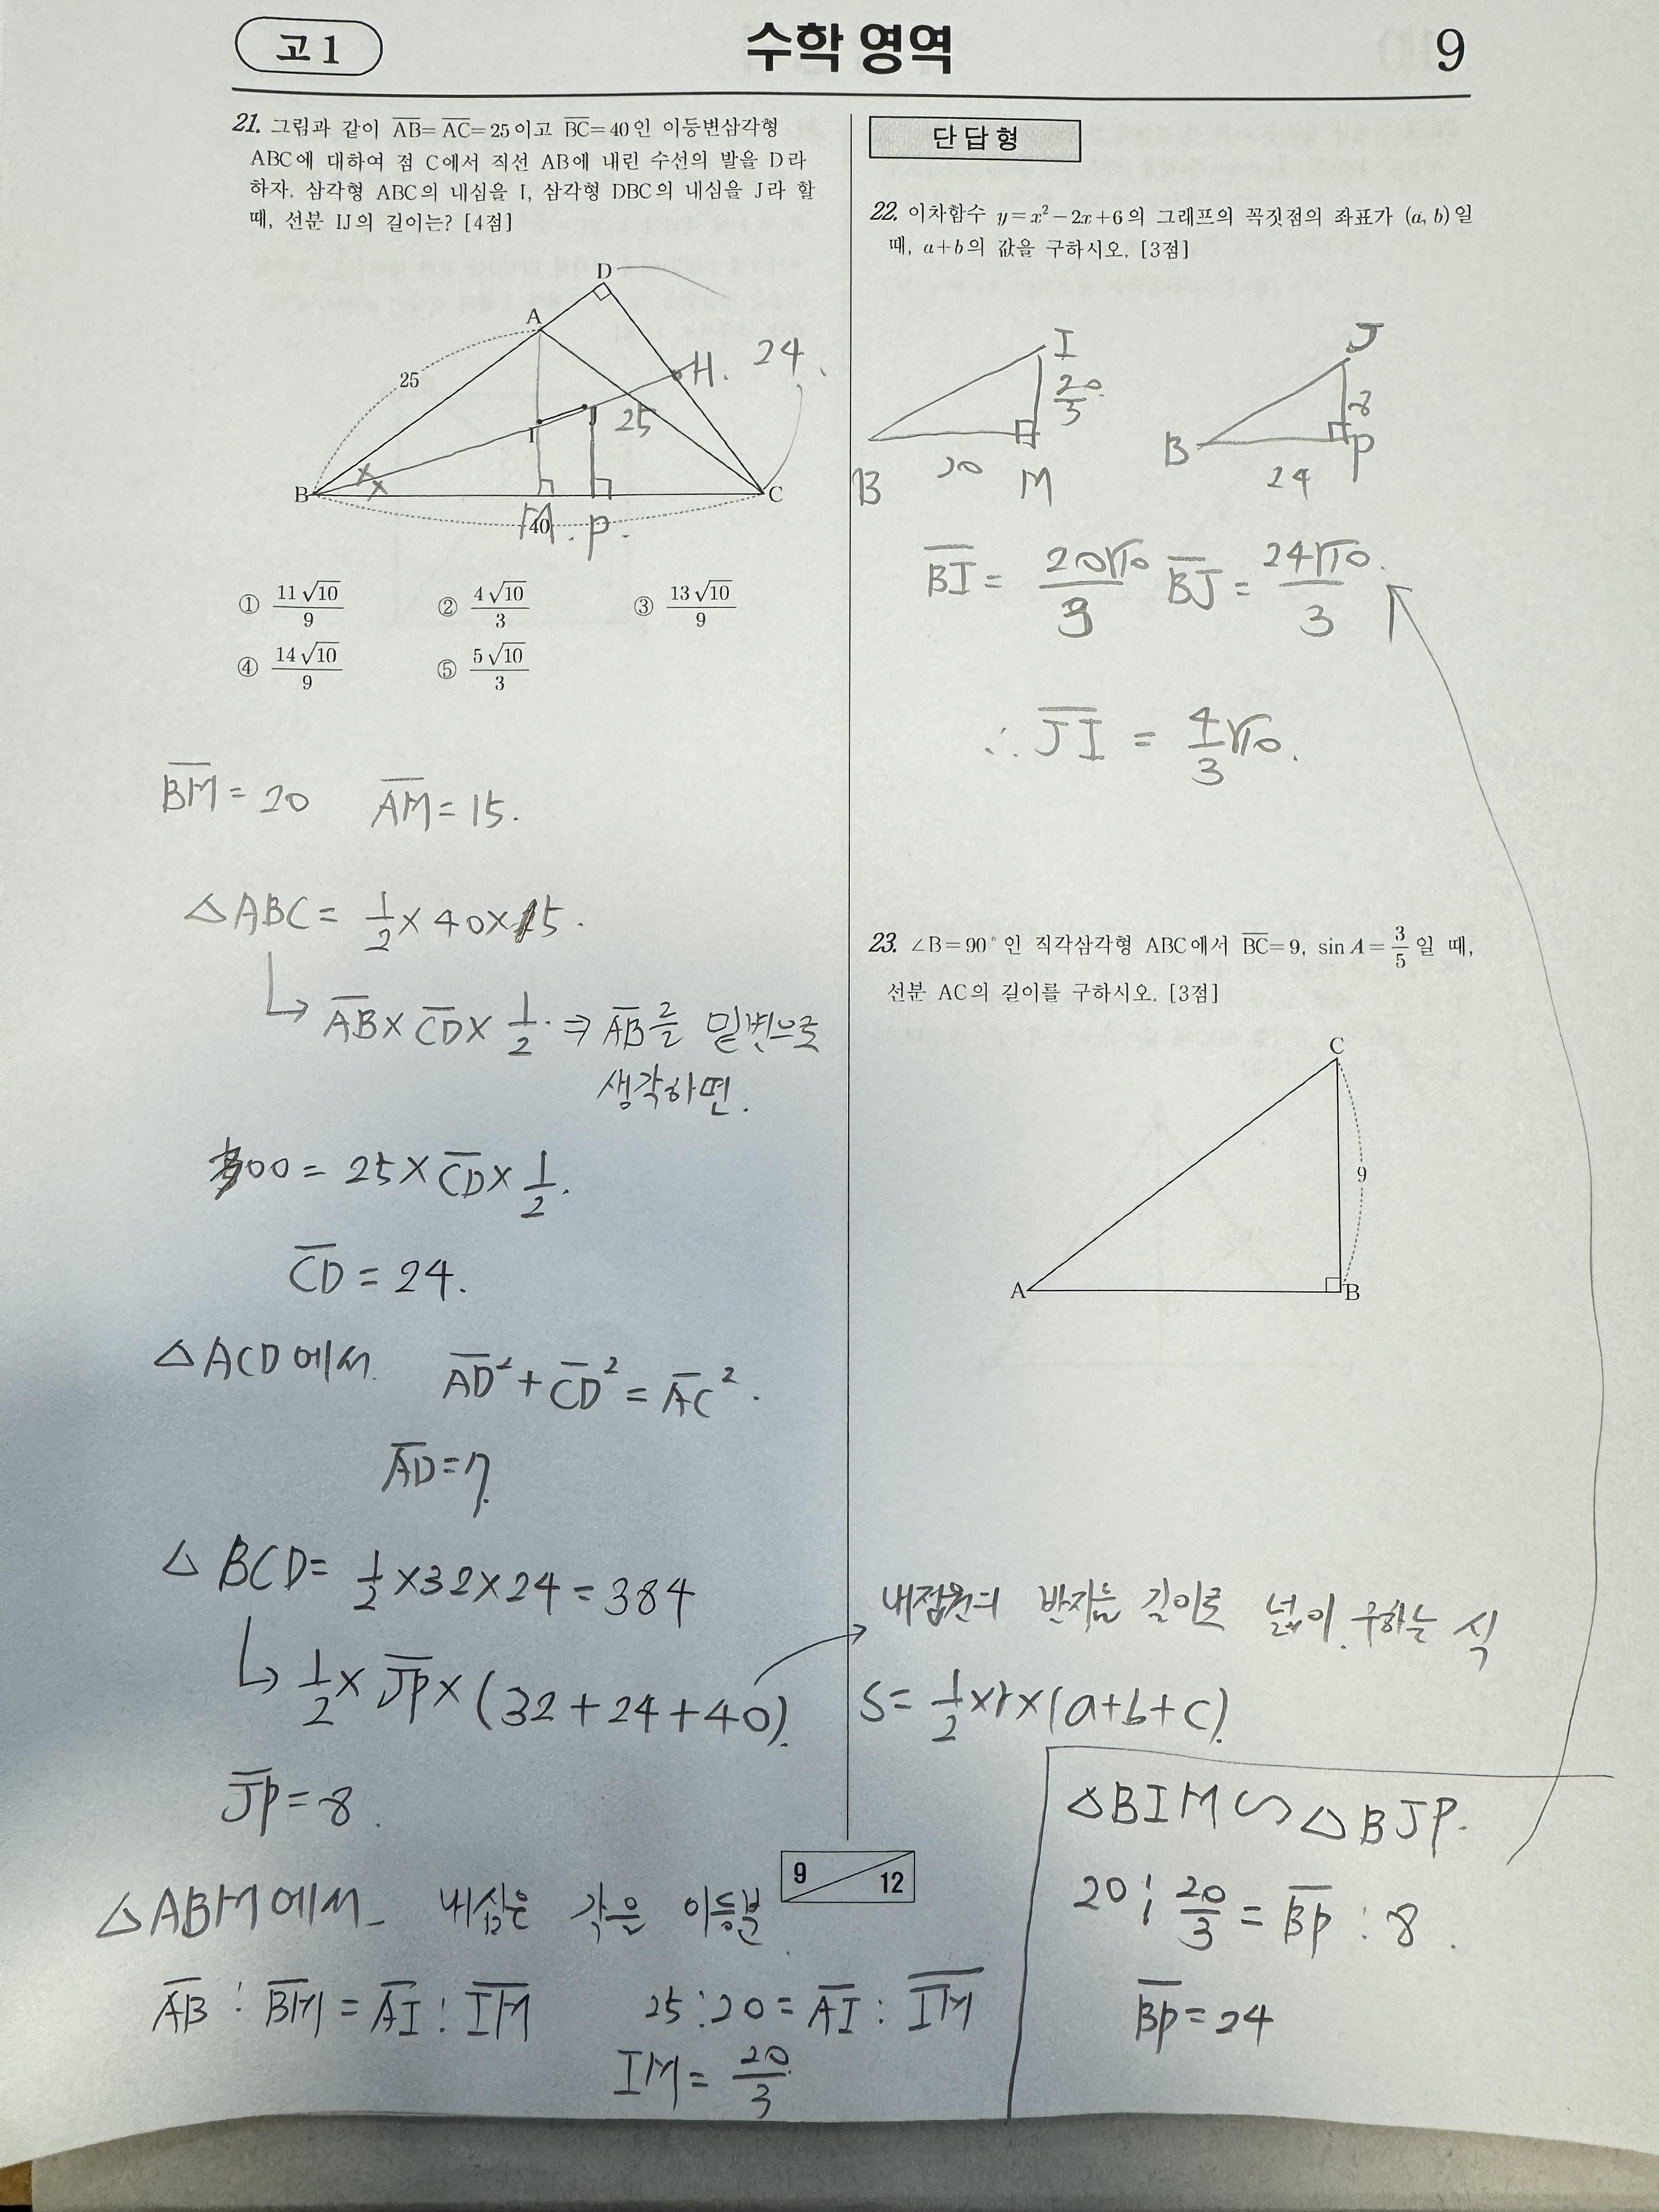 고 1
수학 영역
9
21. 그림과 같이 \overline{AB}=\overline{AC}=25이고 \overline{BC}=40인 이등변삼각형
ABC에 대하여 점 C에서 직선 AB에 내린 수선의 발을 D라
하자. 삼각형 ABC의 내심을 I, 삼각형 DBC의 내심을 J라 할
때, 선분 IJ의 길이는? [4점]
D
A
25
H.
24
I
J
25
B
C
40
M.
P.
① \frac{11\sqrt{10}}{9}
② \frac{4\sqrt{10}}{3}
③ \frac{13\sqrt{10}}{9}
④ \frac{14\sqrt{10}}{9}
⑤ \frac{5\sqrt{10}}{3}
\overline{BM} = 20 \overline{AM} = 15.
△ABC = \frac{1}{2} × 40 × 15.
↳ \overline{AB} × \overline{CD} × \frac{1}{2}. ⇒ \overline{AB}를 밑변으로
생각하면.
300 = 25 × \overline{CD} × \frac{1}{2}.
\overline{CD} = 24.
△ACD에서 \overline{AD}^2 + \overline{CD}^2 = \overline{AC}^2.
\overline{AD} = 7.
△BCD = \frac{1}{2} × 32 × 24 = 384
↳ \frac{1}{2} × \overline{JP} × (32 + 24 + 40).
\overline{JP} = 8.
△ABM에서 내심은 각을 이등분.
\overline{AB} : \overline{BM} = \overline{AI} : \overline{IM} 25 : 20 = \overline{AI} : \overline{IM}
IM = \frac{20}{3}
9
12
단답형
22. 이차함수 y=x^2-2x+6의 그래프의 꼭짓점의 좌표가 (a, b)일
때, a+b의 값을 구하시오. [3점]
I
\frac{20}{3}
B
20
M
J
8
B
P
24
\overline{BI} = \frac{20\sqrt{10}}{3} \overline{BJ} = \frac{24\sqrt{10}}{3}.
∴ \overline{JI} = \frac{4}{3}\sqrt{10}.
23. ∠B=90°인 직각삼각형 ABC에서 \overline{BC}=9, sin A=\frac{3}{5}일 때,
선분 AC의 길이를 구하시오. [3점]
C
9
A
B
내접원의 반지름 길이로 넓이 구하는 식
S = \frac{1}{2} × r × (a+b+c).
△BIM ∽ △BJP.
20 : \frac{20}{3} = \overline{BP} : 8.
\overline{BP} = 24